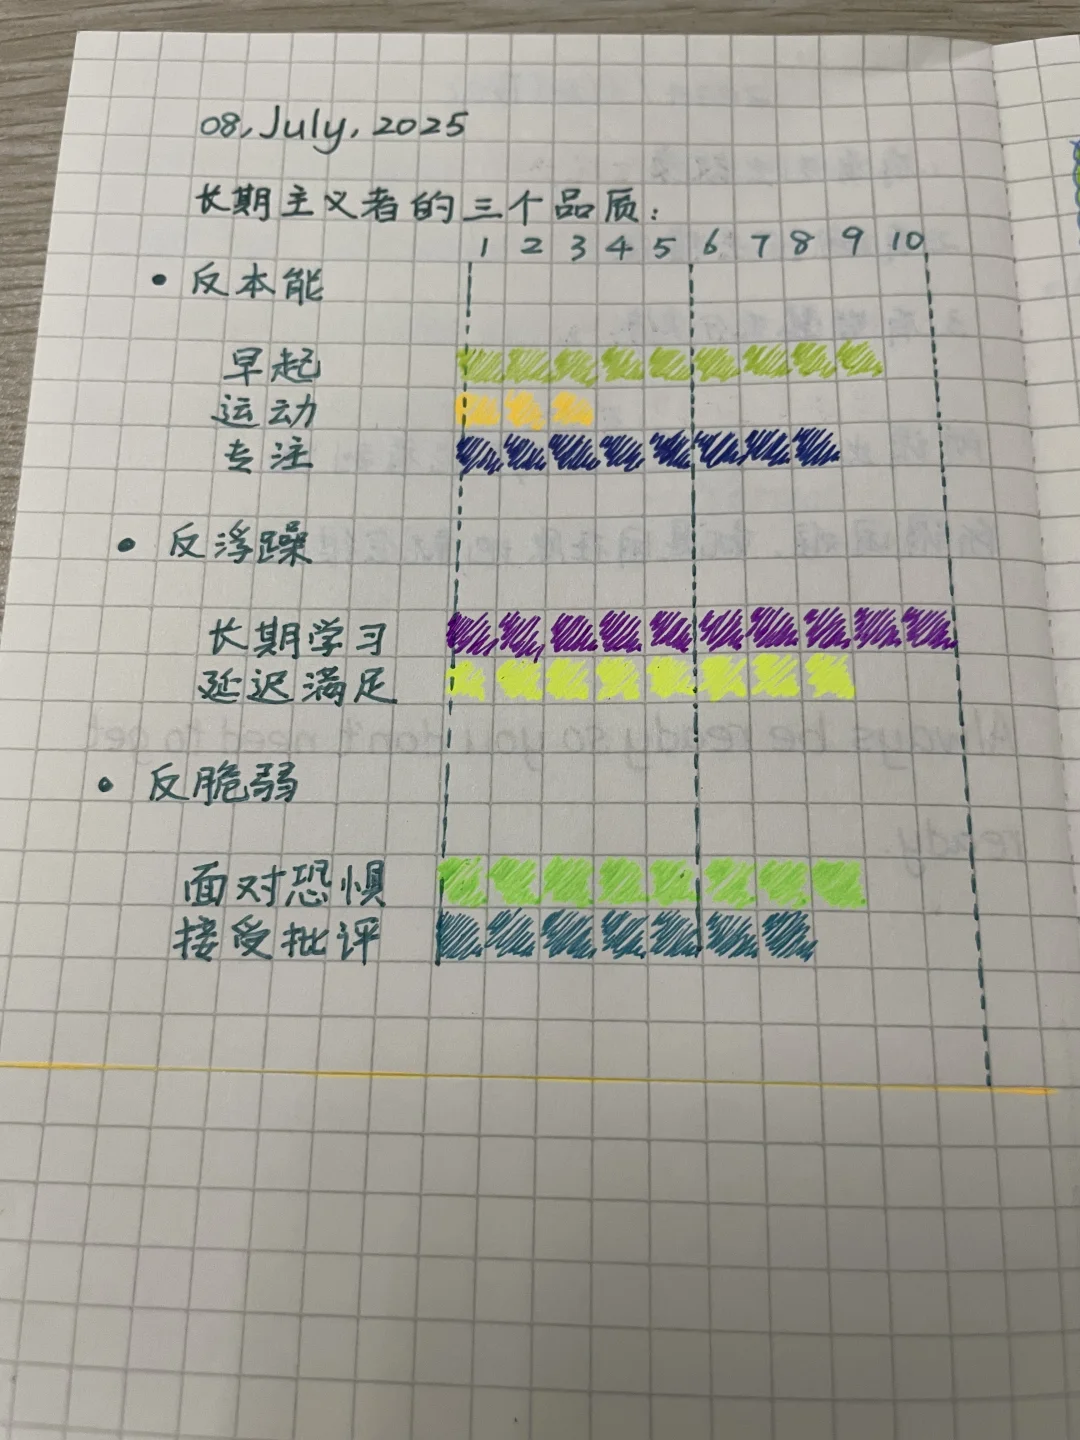 08, July, 2025
长期主义者的三个品质:
1 2 3 4 5 6 7 8 9 10
• 反本能
早起
运动
专注
• 反浮躁
长期学习
延迟满足
• 反脆弱
面对恐惧
接受批评
Always be ready so you don't need to get
ready.